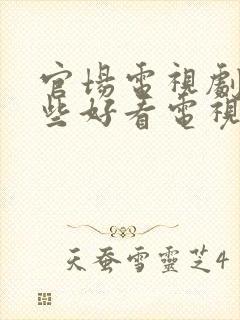 官場電視劇
些好看電視
天蚕雪靈芝4